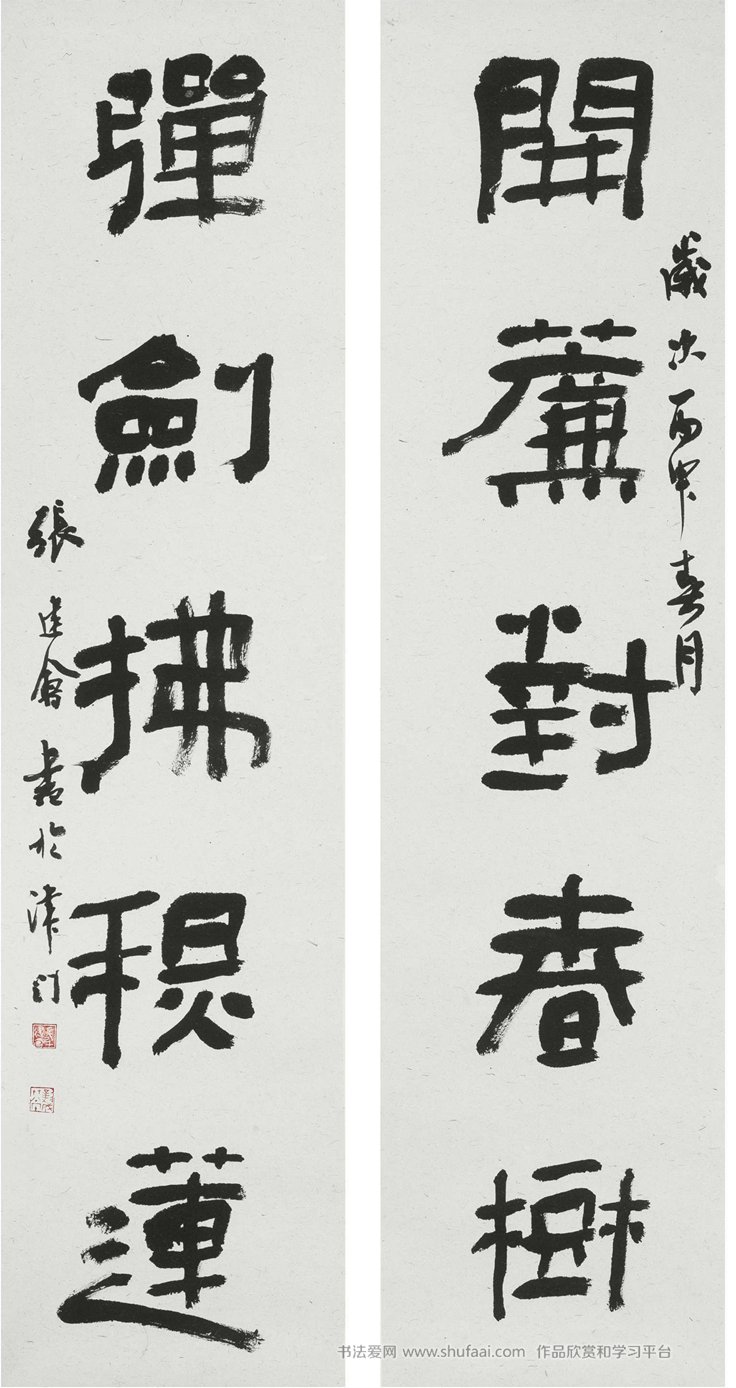 開簾對春樹
歲次丙申春月
彈劍拂秋蓮
張建會書於津門
书法爱网 www.shufaai.com 作品欣赏和学习平台